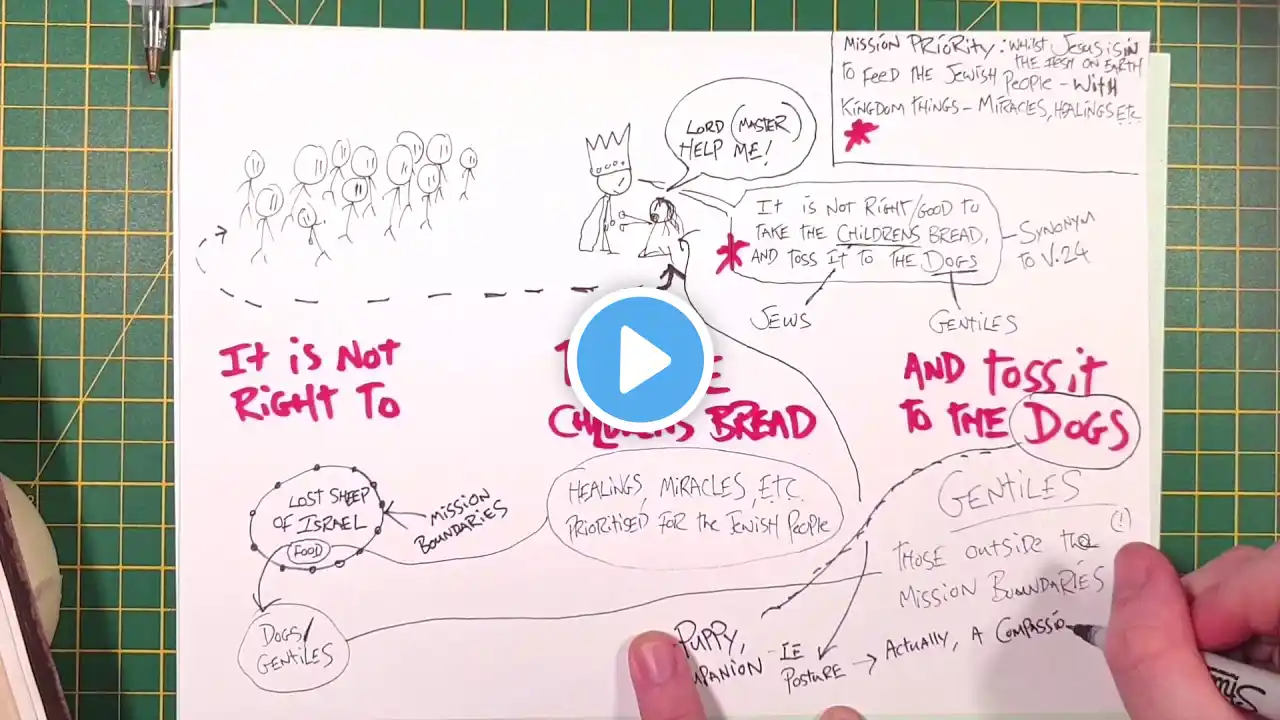 MISSION PRIORITY: WHILST JESUS IS IN
THE FLESH ON EARTH
TO FEED THE JEWISH PEOPLE - WITH
KINGDOM THINGS - MIRACLES, HEALINGS ETC
LORD MASTER
HELP ME!
IT IS NOT RIGHT/GOOD TO
TAKE THE CHILDRENS BREAD,
AND TOSS IT TO THE DOGS
SYNONYM
TO V.24
JEWS
GENTILES
IT IS NOT
RIGHT TO
CHILDRENS BREAD
AND TOSS IT
TO THE DOGS
LOST SHEEP
OF ISRAEL
FOOD
MISSION
BOUNDARIES
HEALINGS, MIRACLES, ETC.
PRIORITISED FOR THE JEWISH PEOPLE
GENTILES
(!)
THOSE OUTSIDE THE
MISSION BOUNDARIES
DOGS/
GENTILES
PUPPY,
- IE
POSTURE
ACTUALLY, A COMPASSIO